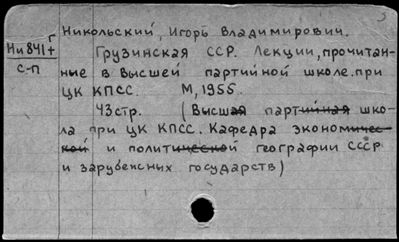 Никольский, Игорь Владимирович.
Ни 841+Г
С-П
Грузинская ССР. Лекции, прочитан-
ные в Высшей партийной школе при
ЦК КПСС. М, 1955.
43 стр. (Высшая партийная шко-
ла при ЦК КПСС. Кафедра экономичес-
кой и политической географии СССР
и зарубежных государств)